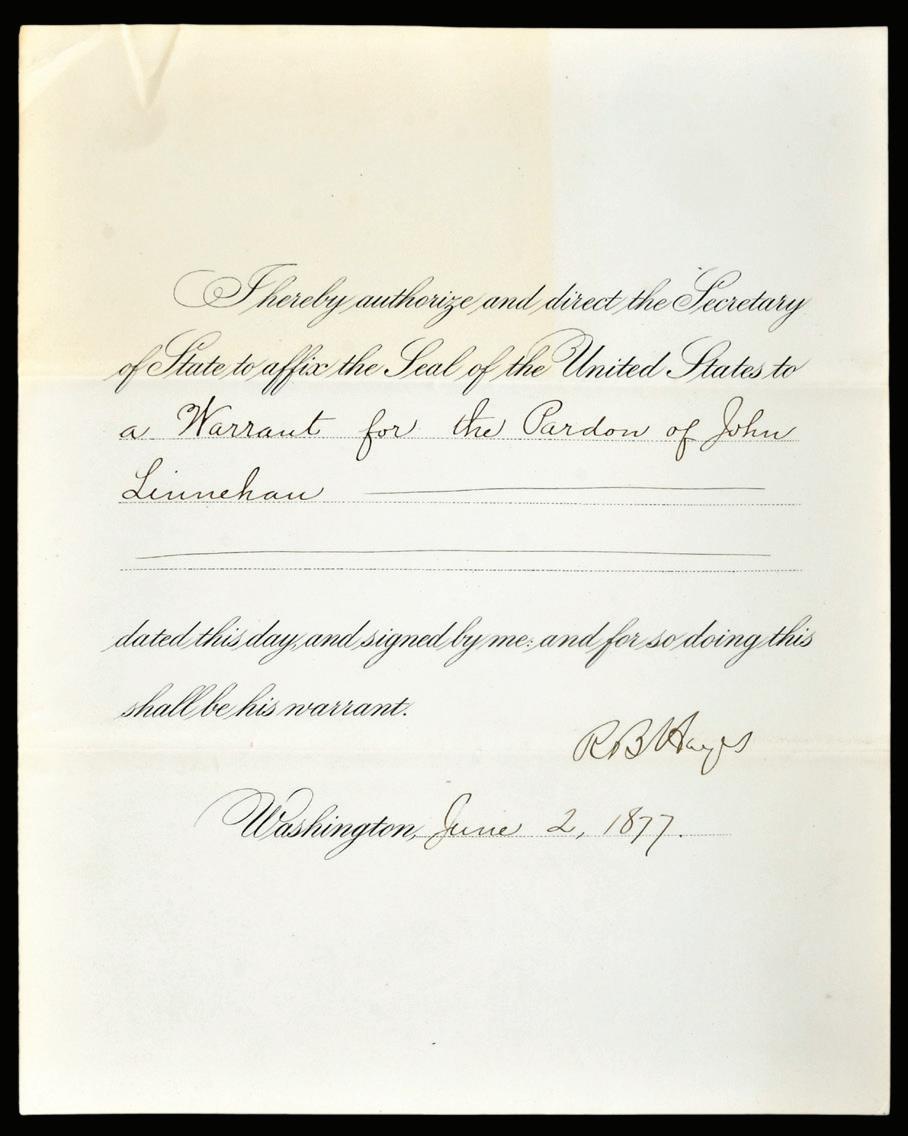 I hereby authorize and direct the Secretary
of State to affix the Seal of the United States to
a Warrant for the Pardon of John
Linnehan
dated this day, and signed by me: and for so doing this
shall be his warrant.
R B Hayes
Washington, June 2, 1877.